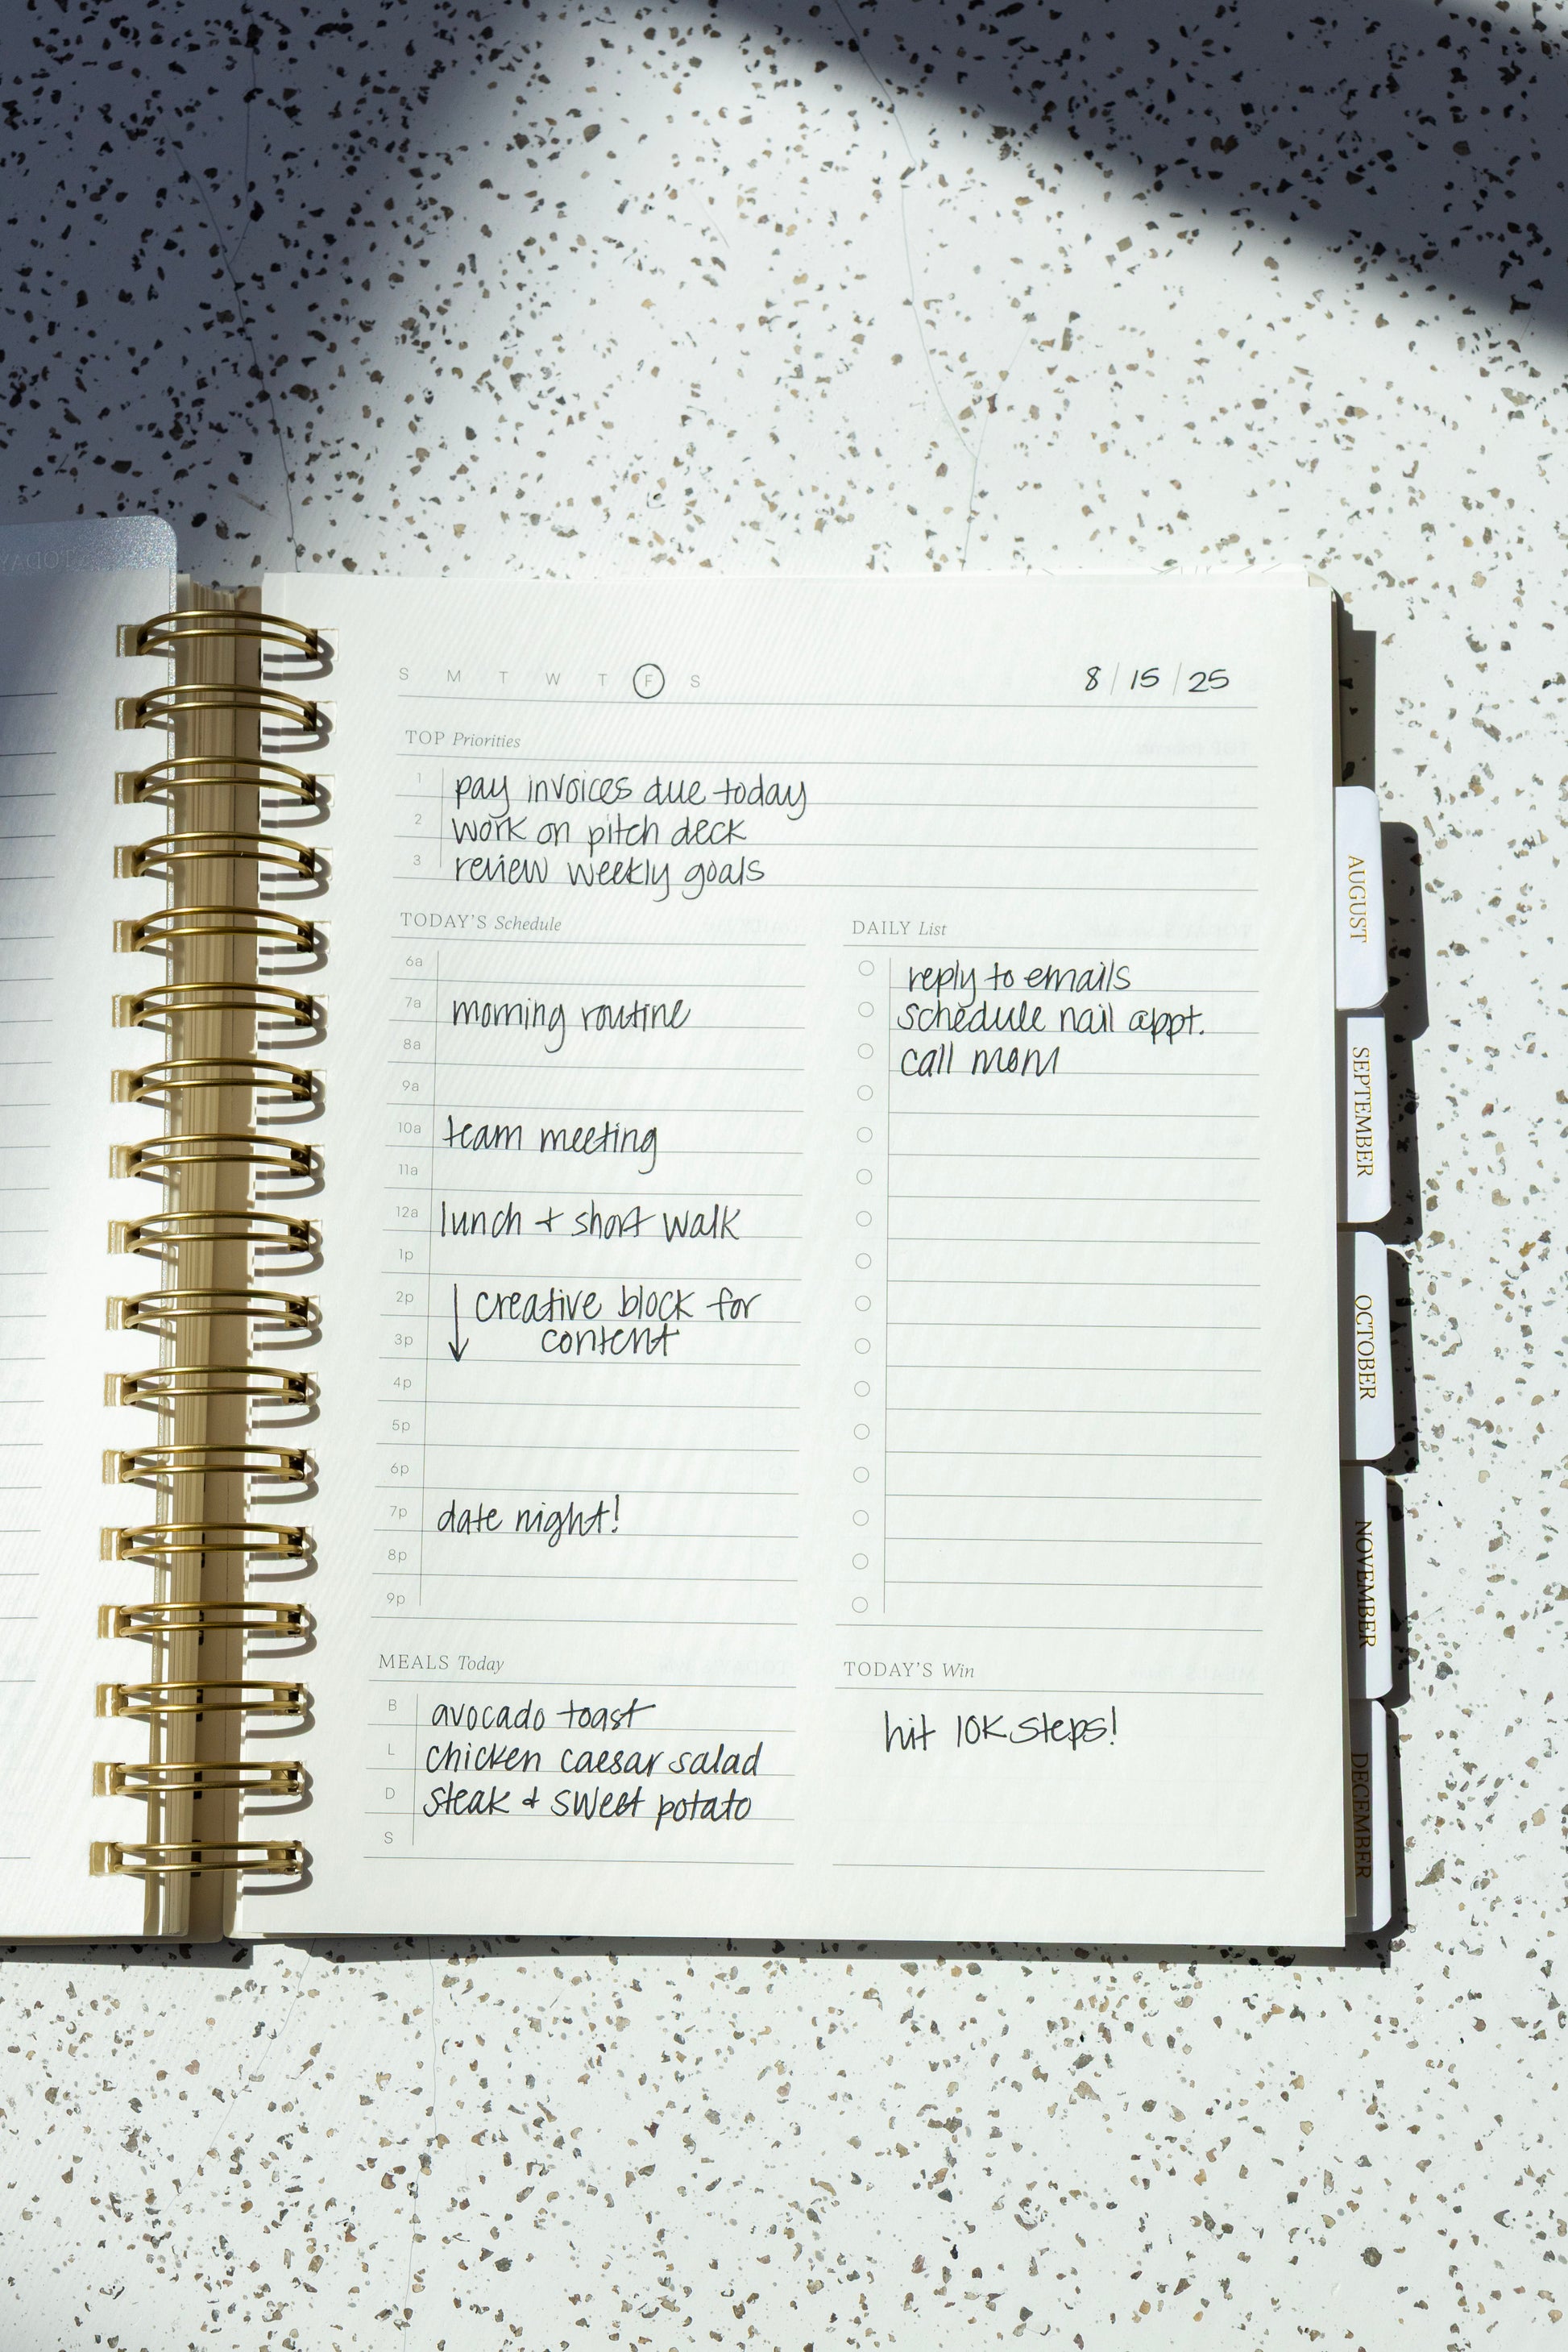 S M T W T F S 8/15/25
TOP Priorities
1 pay invoices due today
2 work on pitch deck
3 review weekly goals
TODAY'S Schedule
6a
7a morning routine
8a
9a
10a team meeting
11a
12a lunch + short walk
1p
2p creative block for
3p content
4p
5p
6p
7p date night!
8p
9p
DAILY List
reply to emails
schedule nail appt.
call mom
MEALS Today
B avocado toast
L chicken caesar salad
D steak & sweet potato
S
TODAY'S Win
hit 10K steps!
AUGUST
SEPTEMBER
OCTOBER
NOVEMBER
DECEMBER